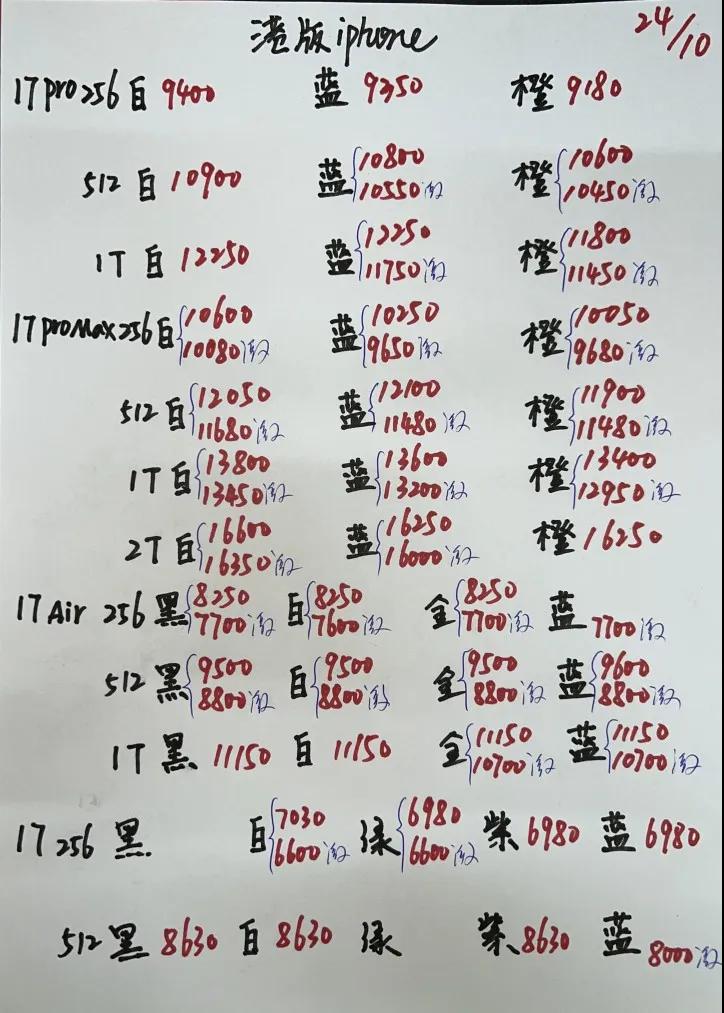 港版iphone 24/10
17pro256白 9400 蓝 9350 橙 9180
512白 10900 蓝 10800 10550激 橙 10600 10450激
1T白 12250 蓝 12250 11750激 橙 11800 11450激
17proMax256白 10600 10080激 蓝 10250 9650激 橙 10050 9680激
512白 12050 11680激 蓝 12100 11480激 橙 11900 11480激
1T白 13800 13450激 蓝 13600 13200激 橙 13400 12950激
2T白 16600 16350激 蓝 16250 16000激 橙 16250
17Air 256黑 8250 7700激 白 8250 7600激 金 8250 7700激 蓝 7700激
512黑 9500 8800激 白 9500 8800激 金 9500 8800激 蓝 9600 8800激
1T黑 11150 白 11150 金 11150 10700激 蓝 11150 10700激
17 256 黑 白 7030 6600激 绿 6980 6600激 紫 6980 蓝 6980
512黑 8630 白 8630 绿 紫 8630 蓝 8000激